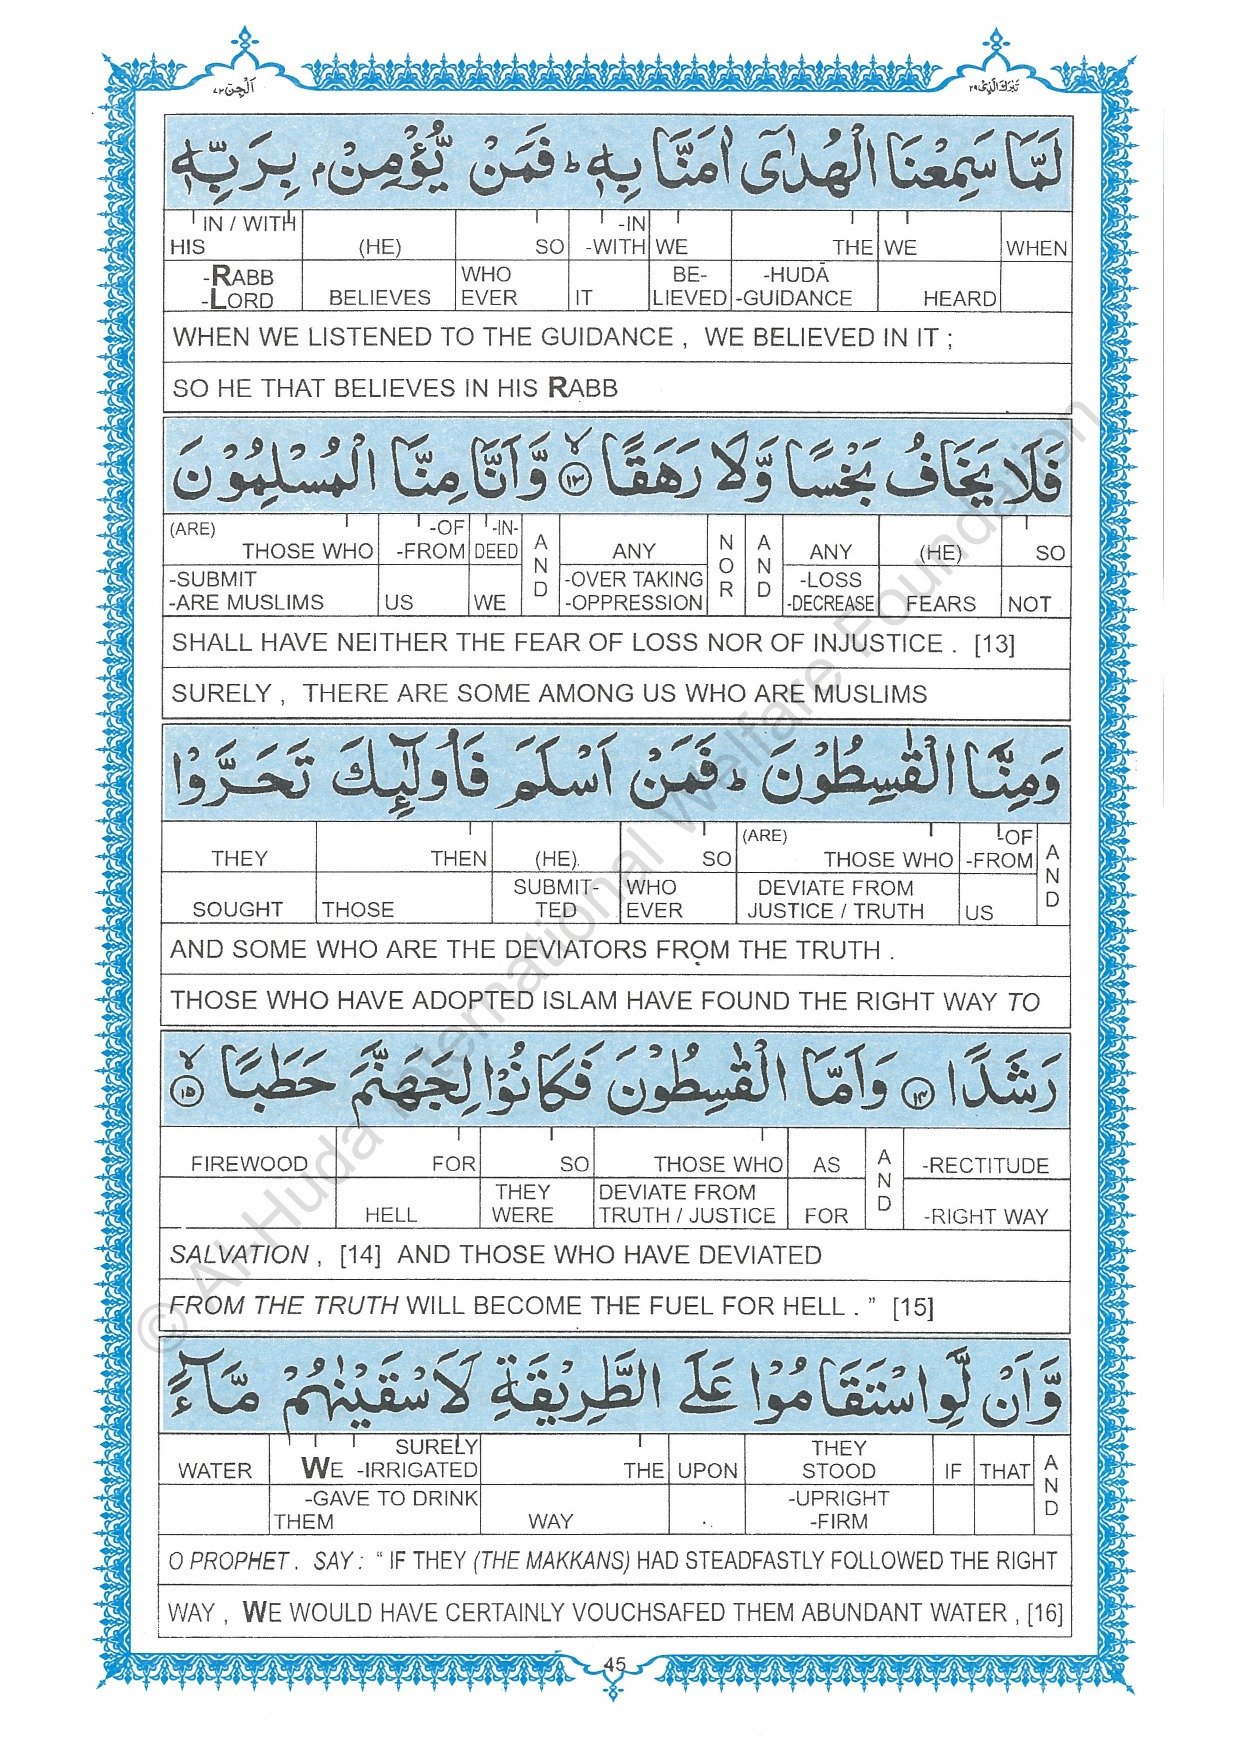 اَلْجِنّ ٧٢
تَبٰرَكَ الَّذِىْ ٢٩
لَمَّا سَمِعْنَا الْهُدٰۤى اٰمَنَّا بِهٖ ؕ فَمَنْ يُّؤْمِنْۢ بِرَبِّهٖ
IN / WITH -IN
HIS (HE) SO -WITH WE THE WE WHEN
-RABB WHO BE- -HUDĀ
-LORD BELIEVES EVER IT LIEVED -GUIDANCE HEARD
WHEN WE LISTENED TO THE GUIDANCE , WE BELIEVED IN IT ;
SO HE THAT BELIEVES IN HIS RABB
فَلَا يَخَافُ بَخْسًا وَّلَا رَهَقًا ۙ ١٣ وَّاَنَّا مِنَّا الْمُسْلِمُوْنَ
(ARE) -OF -IN-
THOSE WHO -FROM DEED AND ANY NOR AND ANY (HE) SO
-SUBMIT -OVER TAKING -LOSS
-ARE MUSLIMS US WE -OPPRESSION -DECREASE FEARS NOT
SHALL HAVE NEITHER THE FEAR OF LOSS NOR OF INJUSTICE . [13]
SURELY , THERE ARE SOME AMONG US WHO ARE MUSLIMS
وَمِنَّا الْقٰسِطُوْنَ ؕ فَمَنْ اَسْلَمَ فَاُولٰٓئِكَ تَحَرَّوْا
(ARE) -OF
THEY THEN (HE). SO THOSE WHO -FROM AND
SUBMIT- WHO DEVIATE FROM
SOUGHT THOSE TED EVER JUSTICE / TRUTH US
AND SOME WHO ARE THE DEVIATORS FROM THE TRUTH .
THOSE WHO HAVE ADOPTED ISLAM HAVE FOUND THE RIGHT WAY TO
رَشَدًا ١٤ وَاَمَّا الْقٰسِطُوْنَ فَكَانُوْا لِجَهَنَّمَ حَطَبًا ۙ ١٥
FIREWOOD FOR SO THOSE WHO AS AND -RECTITUDE
THEY DEVIATE FROM
HELL WERE TRUTH / JUSTICE FOR -RIGHT WAY
SALVATION , [14] AND THOSE WHO HAVE DEVIATED
FROM THE TRUTH WILL BECOME THE FUEL FOR HELL . ” [15]
وَّاَنْ لَّوِ اسْتَقَامُوْا عَلَى الطَّرِيْقَةِ لَاَسْقَيْنٰهُمْ مَّآءً
SURELY THEY
WATER WE -IRRIGATED THE UPON STOOD IF THAT AND
-GAVE TO DRINK -UPRIGHT
THEM WAY -FIRM
O PROPHET . SAY : “ IF THEY (THE MAKKANS) HAD STEADFASTLY FOLLOWED THE RIGHT
WAY , WE WOULD HAVE CERTAINLY VOUCHSAFED THEM ABUNDANT WATER , [16]
45
© Al-Huda International Welfare Foundation